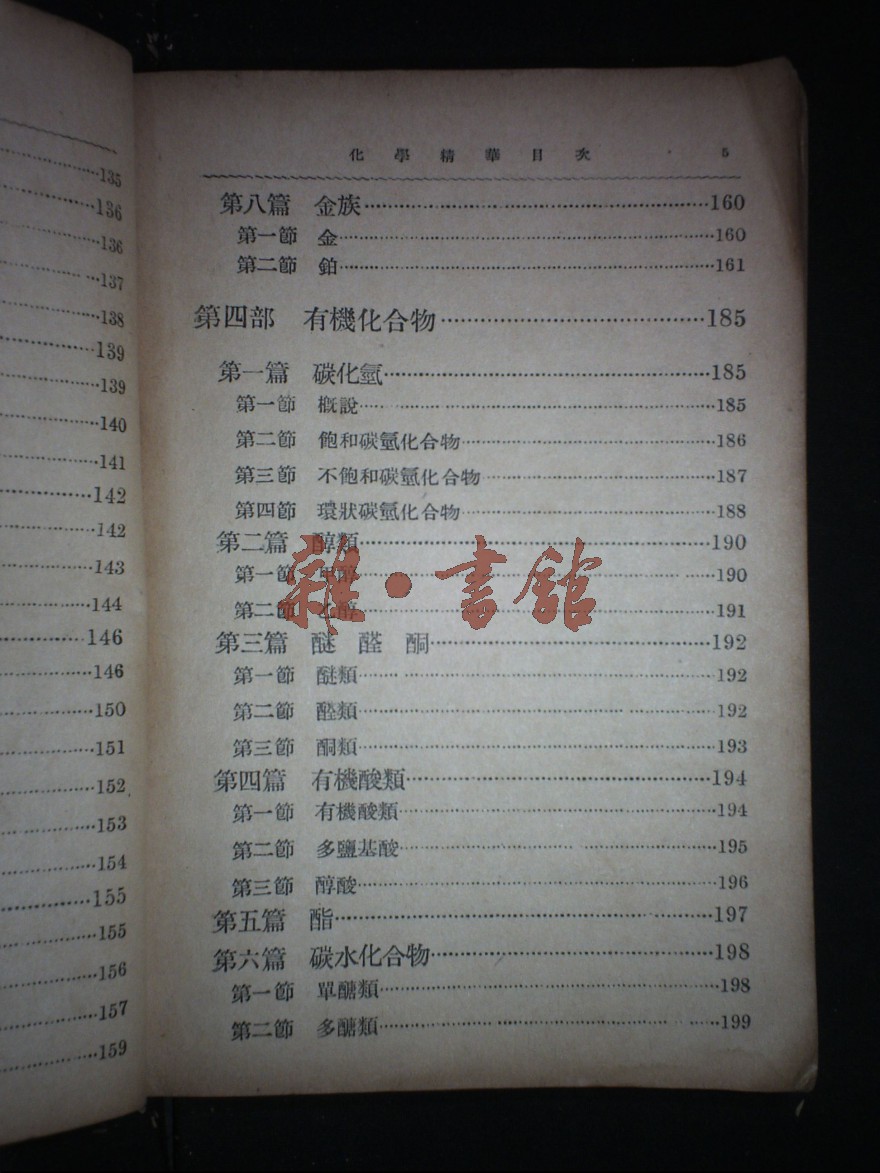 135
136
136
137
138
139
139
140
141
142
142
143
144
146
146
150
151
152
153
154
155
155
156
157
159
化學精華目次 5
第八篇 金族 160
第一節 金 160
第二節 鉑 161
第四部 有機化合物 185
第一篇 碳化氫 185
第一節 概說 185
第二節 飽和碳氫化合物 186
第三節 不飽和碳氫化合物 187
第四節 環狀碳氫化合物 188
第二篇 醇類 190
第一節 甲醇 190
第二節 乙醇 191
第三篇 醚 醛 酮 192
第一節 醚類 192
第二節 醛類 192
第三節 酮類 193
第四篇 有機酸類 194
第一節 有機酸類 194
第二節 多鹽基酸 195
第三節 醇酸 196
第五篇 酯 197
第六篇 碳水化合物 198
第一節 單醣類 198
第二節 多醣類 199
雜·書館